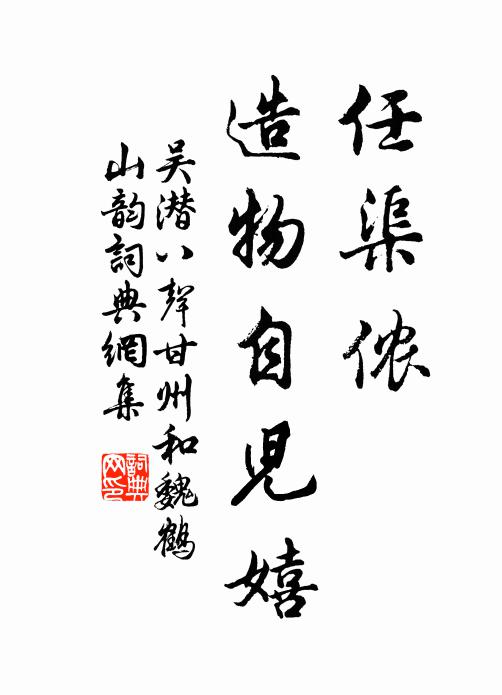 任渠侬
造物自児嬉
吴潜八聲甘州和魏鶴
山韵詞典網集
詞典
网印